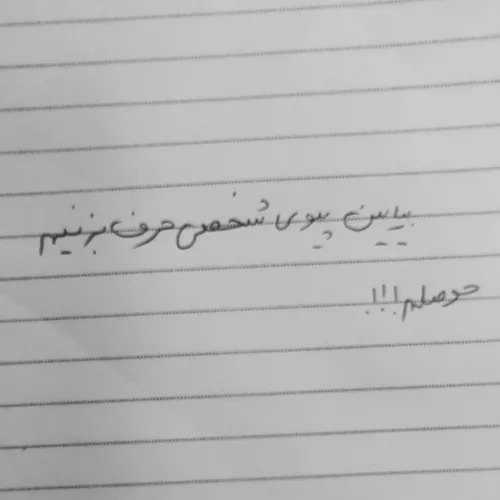 بیاین پیوی شخصی حرف بزنیم
حوصلم!!!